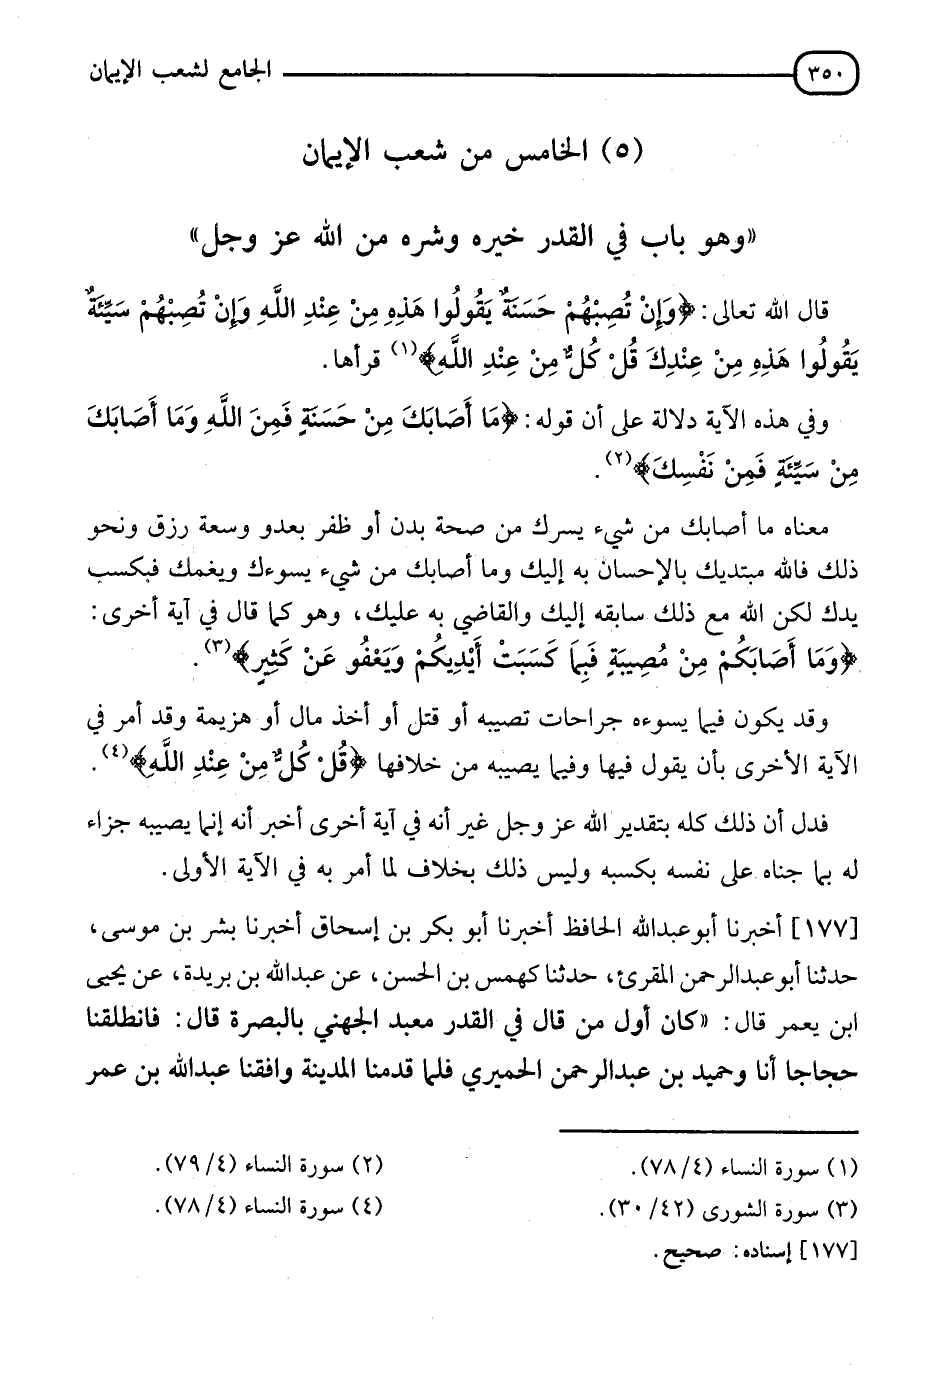 ٣٥٠ الجامع لشعب الإيمان
(٥) الخامس من شعب الإيمان
«وهو باب في القدر خيره وشره من الله عز وجل»
قال الله تعالى: ﴿وَإِنْ تُصِبْهُمْ حَسَنَةٌ يَقُولُوا هَذِهِ مِنْ عِنْدِ اللَّهِ وَإِنْ تُصِبْهُمْ سَيِّئَةٌ
يَقُولُوا هَذِهِ مِنْ عِنْدِكَ قُلْ كُلٌّ مِنْ عِنْدِ اللَّهِ﴾(١) قرأها.
وفي هذه الآية دلالة على أن قوله: ﴿مَا أَصَابَكَ مِنْ حَسَنَةٍ فَمِنَ اللَّهِ وَمَا أَصَابَكَ
مِنْ سَيِّئَةٍ فَمِنْ نَفْسِكَ﴾(٢).
معناه ما أصابك من شيء يسرك من صحة بدن أو ظفر بعدو وسعة رزق ونحو
ذلك فالله مبتديك بالإحسان به إليك وما أصابك من شيء يسوءك ويغمك فبكسب
يدك لكن الله مع ذلك سابقه إليك والقاضي به عليك، وهو كما قال في آية أخرى:
﴿وَمَا أَصَابَكُمْ مِنْ مُصِيبَةٍ فَبِمَا كَسَبَتْ أَيْدِيكُمْ وَيَعْفُو عَنْ كَثِيرٍ﴾(٣).
وقد يكون فيما يسوءه جراحات تصيبه أو قتل أو أخذ مال أو هزيمة وقد أمر في
الآية الأخرى بأن يقول فيها وفيما يصيبه من خلافها ﴿قُلْ كُلٌّ مِنْ عِنْدِ اللَّهِ﴾(٤).
فدل أن ذلك كله بتقدير الله عز وجل غير أنه في آية أخرى أخبر أنه إنما يصيبه جزاء
له بما جناه على نفسه بكسبه وليس ذلك بخلاف لما أمر به في الآية الأولى.
[١٧٧] أخبرنا أبو عبدالله الحافظ أخبرنا أبو بكر بن إسحاق أخبرنا بشر بن موسى،
حدثنا أبو عبدالرحمن المقرئ، حدثنا كهمس بن الحسن، عن عبدالله بن بريدة، عن يحيى
ابن يعمر قال: «كان أول من قال في القدر معبد الجهني بالبصرة قال: فانطلقنا
حجاجا أنا وحميد بن عبدالرحمن الحميري فلما قدمنا المدينة وافقنا عبدالله بن عمر
(١) سورة النساء (٤/ ٧٨). (٢) سورة النساء (٤/ ٧٩).
(٣) سورة الشورى (٤٢/ ٣٠). (٤) سورة النساء (٤/ ٧٨).
[١٧٧] إسناده: صحيح.